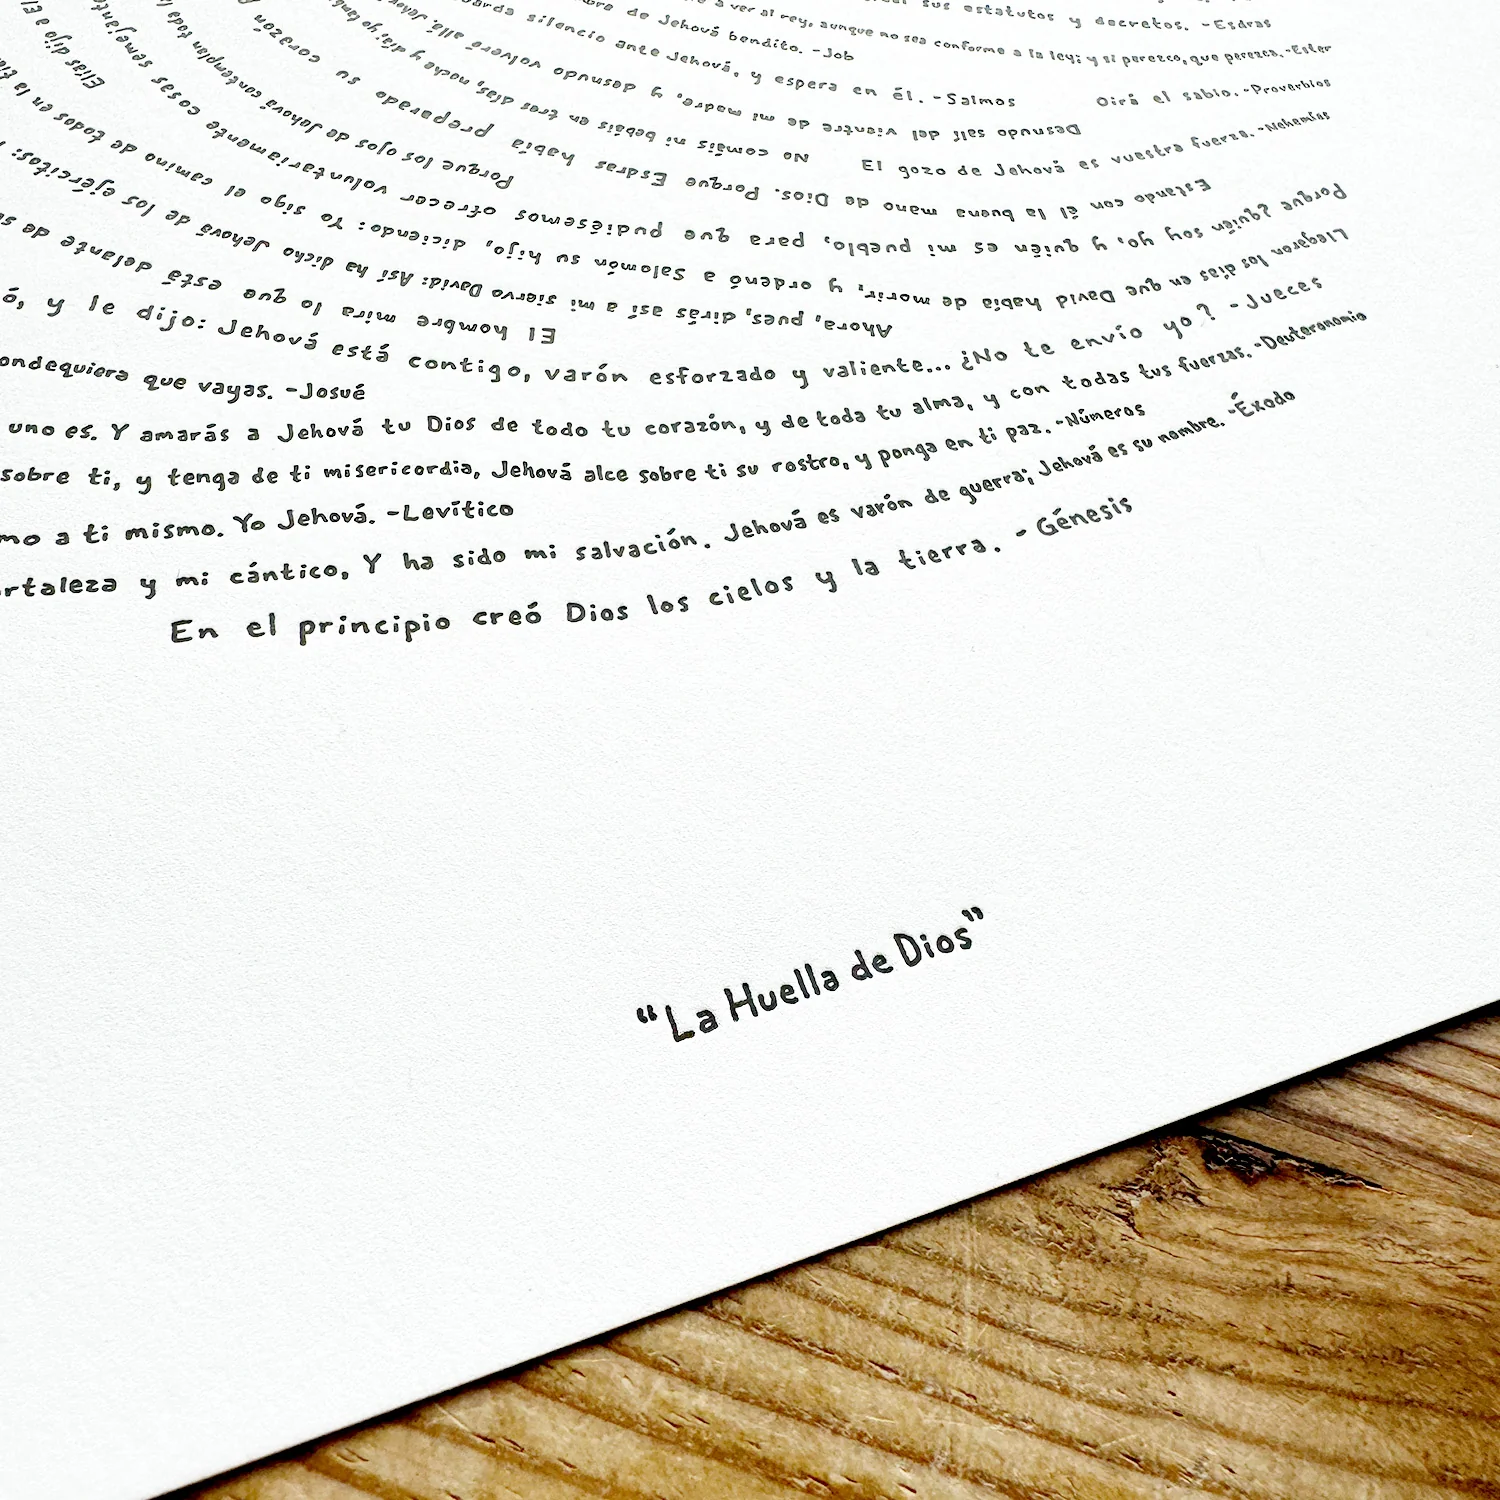 sus estatutos y decretos. -Esdras
a ver al rey, aunque no sea conforme a la ley; y si perezco, que perezca. -Ester
de Jehová bendito. -Job
silencio ante Jehová, y espera en él. -Salmos
Oirá el sabio. -Proverbios
Desnudo salí del vientre de mi madre, y desnudo volveré allá. Jehová
No comáis ni bebáis en tres días, noche y día; yo
El gozo de Jehová es vuestra fuerza. -Nehemías
Estando con él la buena mano de Dios. Porque Esdras había preparado su corazón
Porque los ojos de Jehová contemplan toda
Porque ¿quién soy yo, y quién es mi pueblo, para que pudiésemos ofrecer voluntariamente cosas semejantes
Llegaron los días en que David había de morir, y ordenó a Salomón su hijo, diciendo: Yo sigo el camino de todos en la
Elías dijo a
Ahora, pues, dirás así a mi siervo David: Así ha dicho Jehová de los ejércitos:
El hombre mira lo que está delante de
ó, y le dijo: Jehová está contigo, varón esforzado y valiente... ¿No te envío yo? -Jueces
ondequiera que vayas. -Josué
uno es. Y amarás a Jehová tu Dios de todo tu corazón, y de toda tu alma, y con todas tus fuerzas. -Deuteronomio
sobre ti, y tenga de ti misericordia, Jehová alce sobre ti su rostro, y ponga en ti paz. -Números
mo a ti mismo. Yo Jehová. -Levítico
rtaleza y mi cántico, Y ha sido mi salvación. Jehová es varón de guerra; Jehová es su nombre. -Éxodo
En el principio creó Dios los cielos y la tierra. - Génesis
“La Huella de Dios”